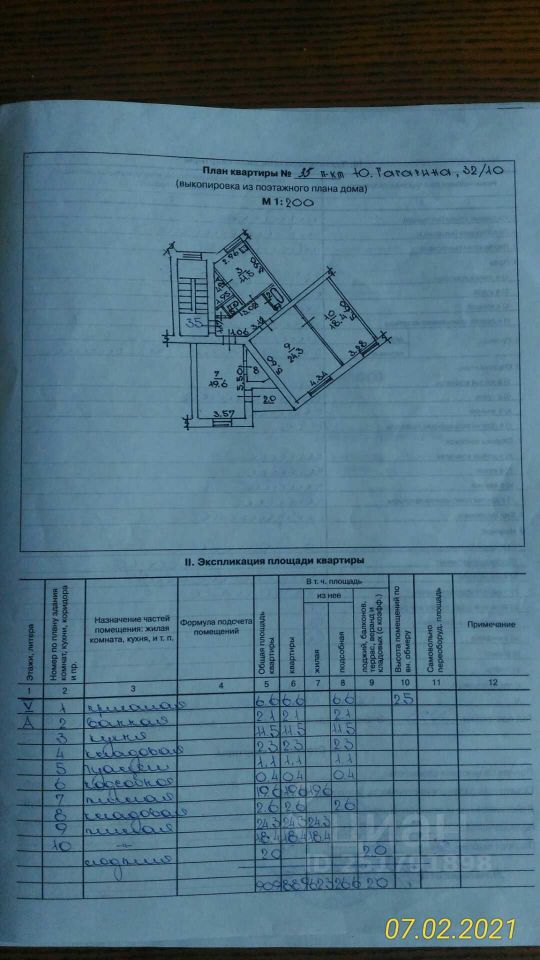 План квартиры № 35 п-кт Ю. Гагарина, 32/10
(выкопировка из поэтажного плана дома)
М 1: 200
2.96
3
11.5
35
1.06
3.12
10
18.4
9
24.3
3.28
4.34
7
19.6
5.50
8
2.0
3.57
II. Экспликация площади квартиры
Этажи, литера
Номер по плану здания комнат, кухни, коридора и пр.
Назначение частей помещения: жилая комната, кухня, и т. п.
Формула подсчета помещений
Общая площадь квартиры
В т. ч. площадь
квартиры
из нее
жилая
подсобная
лоджий, балконов, террас, веранд и кладовых (с коэфф.)
Высота помещений по вн. обмеру
Самовольно переоборуд. площадь
Примечание
1 2 3 4 5 6 7 8 9 10 11 12
V 1 прихожая 6.6 6.6 6.6 2.5
А 2 ванная 2.1 2.1 2.1
3 кухня 11.5 11.5 11.5
4 кладовая 2.3 2.3 2.3
5 туалет 1.1 1.1 1.1
6 подсобная 0.4 0.4 0.4
7 жилая 19.6 19.6 19.6
8 кладовая 2.6 2.6 2.6
9 жилая 24.3 24.3 24.3
10 -"- 18.4 18.4 18.4
лоджия 2.0 2.0
90.9 88.9 62.3 26.6 2.0
07.02.2021